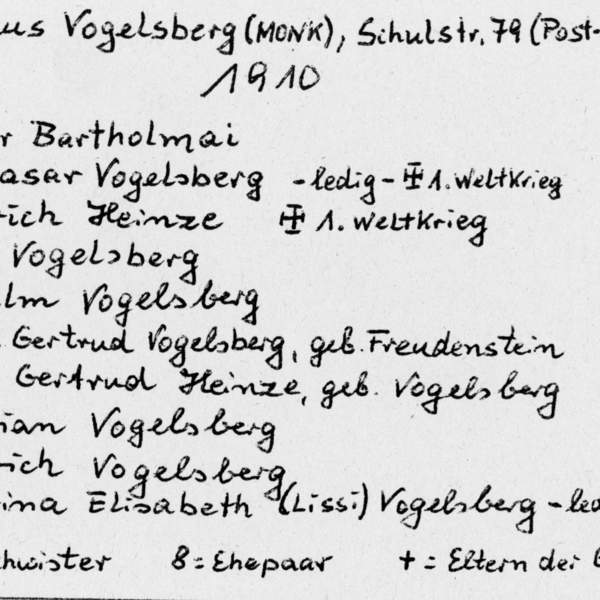 us Vogelsberg (MONK), Schulstr. 79 (Post-
1910
r Bartholmai
asar Vogelsberg - ledig - ✠ 1. Weltkrieg
rich Heinze ✠ 1. Weltkrieg
Vogelsberg
lm Vogelsberg
. Gertrud Vogelsberg, geb. Freudenstein
Gertrud Heinze, geb. Vogelsberg
ian Vogelsberg
rich Vogelsberg
ina Elisabeth (Lissi) Vogelsberg - led
chwister 8 = Ehepaar + = Eltern der G